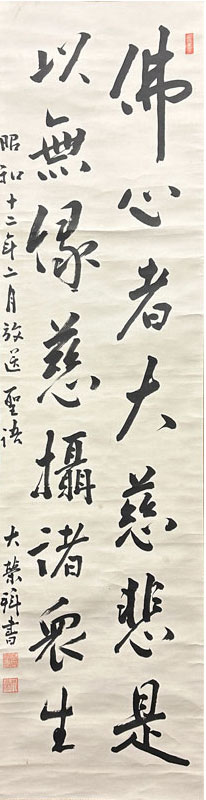 佛心者大慈悲是
以無縁慈攝諸衆生
昭和十二年二月放送聖語
大榮書